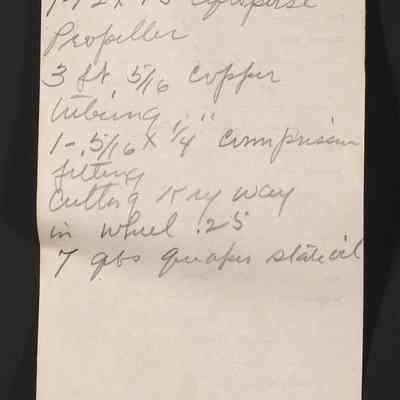 1-12 x 13 Equipoise
Propeller
3 ft 5/16 copper
tubing
1- 5/16 x 1/4" comprision
fitting
Cutting Key way
in wheel .25
7 qts quaker state oil